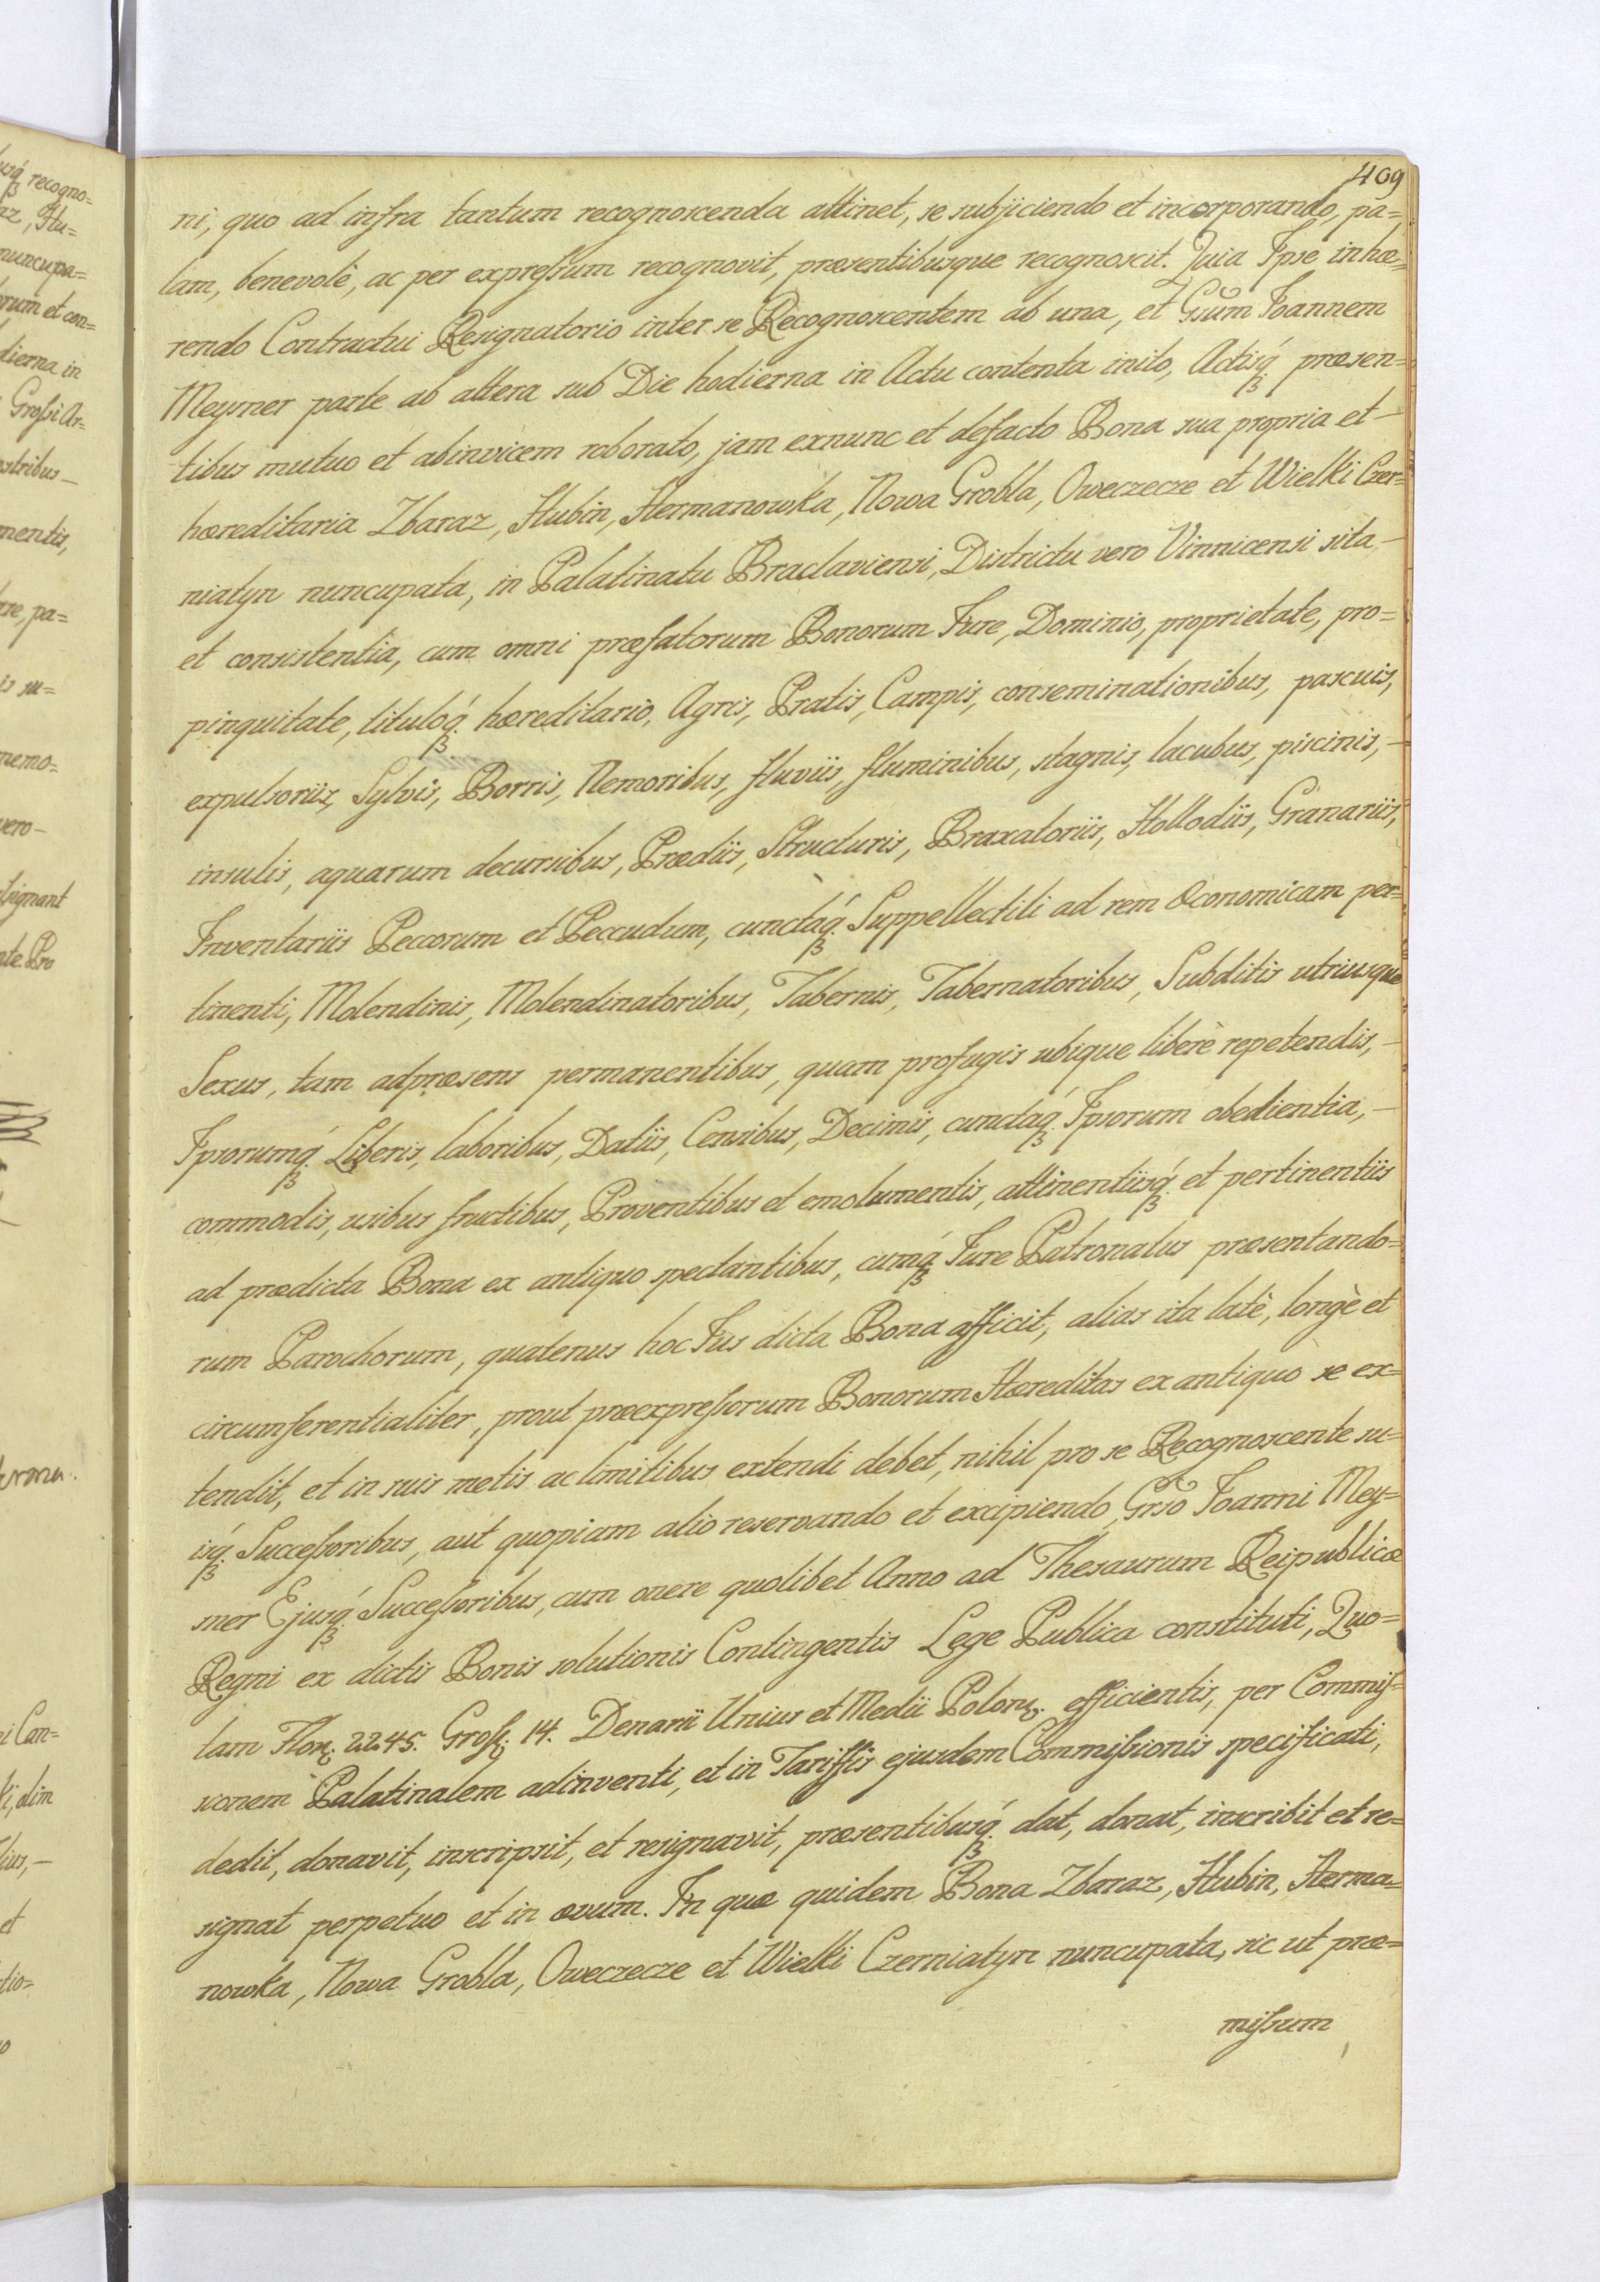 409
ni, quo ad infra tantum recognoscenda attinet, se subjiciendo et incorporando, pa=
lam, benevolè, ac per expressum recognovit, præsentibusque recognoscit. Quia Ipse inhæ=
rendo Contractui Resignatorio inter se Recognoscentem ab una, et Gsum Joannem
Meysner parte ab altera sub Die hodierna in Actu contenta inito, Actisq́ præsen=
tibus mutuo et abinvicem roborato, jam exnunc et defacto Bona sua propria et –
hæreditaria Zbaraz, Hubin, Hermanowka, Nowa Grobla, Oweczecze et Wielki Czer=
niatyn nuncupata, in Palatinatu Braclaviensi, Districtu vero Vinnicensi sita –
et consistentia, cum omni præfatorum Bonorum Jure, Dominio, proprietate, pro=
pinquitate, tituloq́ hæreditario, Agris, Pratis, Campis, conseminationibus, pascuis,
expulsoriis, Sylvis, Borris, Nemoribus, fluviis, fluminibus, stagnis, lacubus, piscinis, –
insulis, aquarum decursibus, Prædiis, Structuris, Braxatoriis, Hollodiis, Granariis,
Inventariis Peccorum et Peccudum, cunctaq́ Suppellectili ad rem Œconomicam per=
tinenti, Molendinis, Molendinatoribus, Tabernis, Tabernatoribus, Subditis utriusque
Sexus, tam adpræsens permanentibus, quam profugis ubique liberè repetendis, –
Ipsorumq́ Liberis, laboribus, Datiis, Censibus, Decimis, cunctaq́ Ipsorum obedientia, –
commodis, usibus fructibus, Proventibus et emolumentis, attinentiisq́ et pertinentiis
ad prædicta Bona ex antiquo spectantibus, cumq́ Jure Patronatus præsentando=
rum Parochorum, quatenus hoc Jus dicta Bona afficit, alias ita latè, longè et
circumferentialiter, prout præexpressorum Bonorum Hæreditas ex antiquo se ex=
tendit, et in suis metis ac limitibus extendi debet, nihil pro se Recognoscente su=
isq́ Successoribus, aut quopiam alio reservando et excipiendo, Grso Joanni Mey=
sner Ejusq́ Successoribus, cum onere quolibet Anno ad Thesaurum Reipublicæ
Regni ex dictis Bonis solutionis Contingentis Lege Publica constituti, Quo=
tam Flor: 2245. Gross: 14. Denarii Unius et Medii Polon: efficientis, per Commis=
sionem Palatinalem adinventi, et in Tariffis ejusdem Commissionis specificati,
dedit, donavit, inscripsit, et resignavit, præsentibusq́ dat, donat, inscribit et re=
signat perpetuo et in ævum. In quæ quidem Bona Zbaraz, Hubin, Herma=
nowka, Nowa Grobla, Oweczecze et Wielki Czerniatyn nuncupata, sic ut præ=
missum